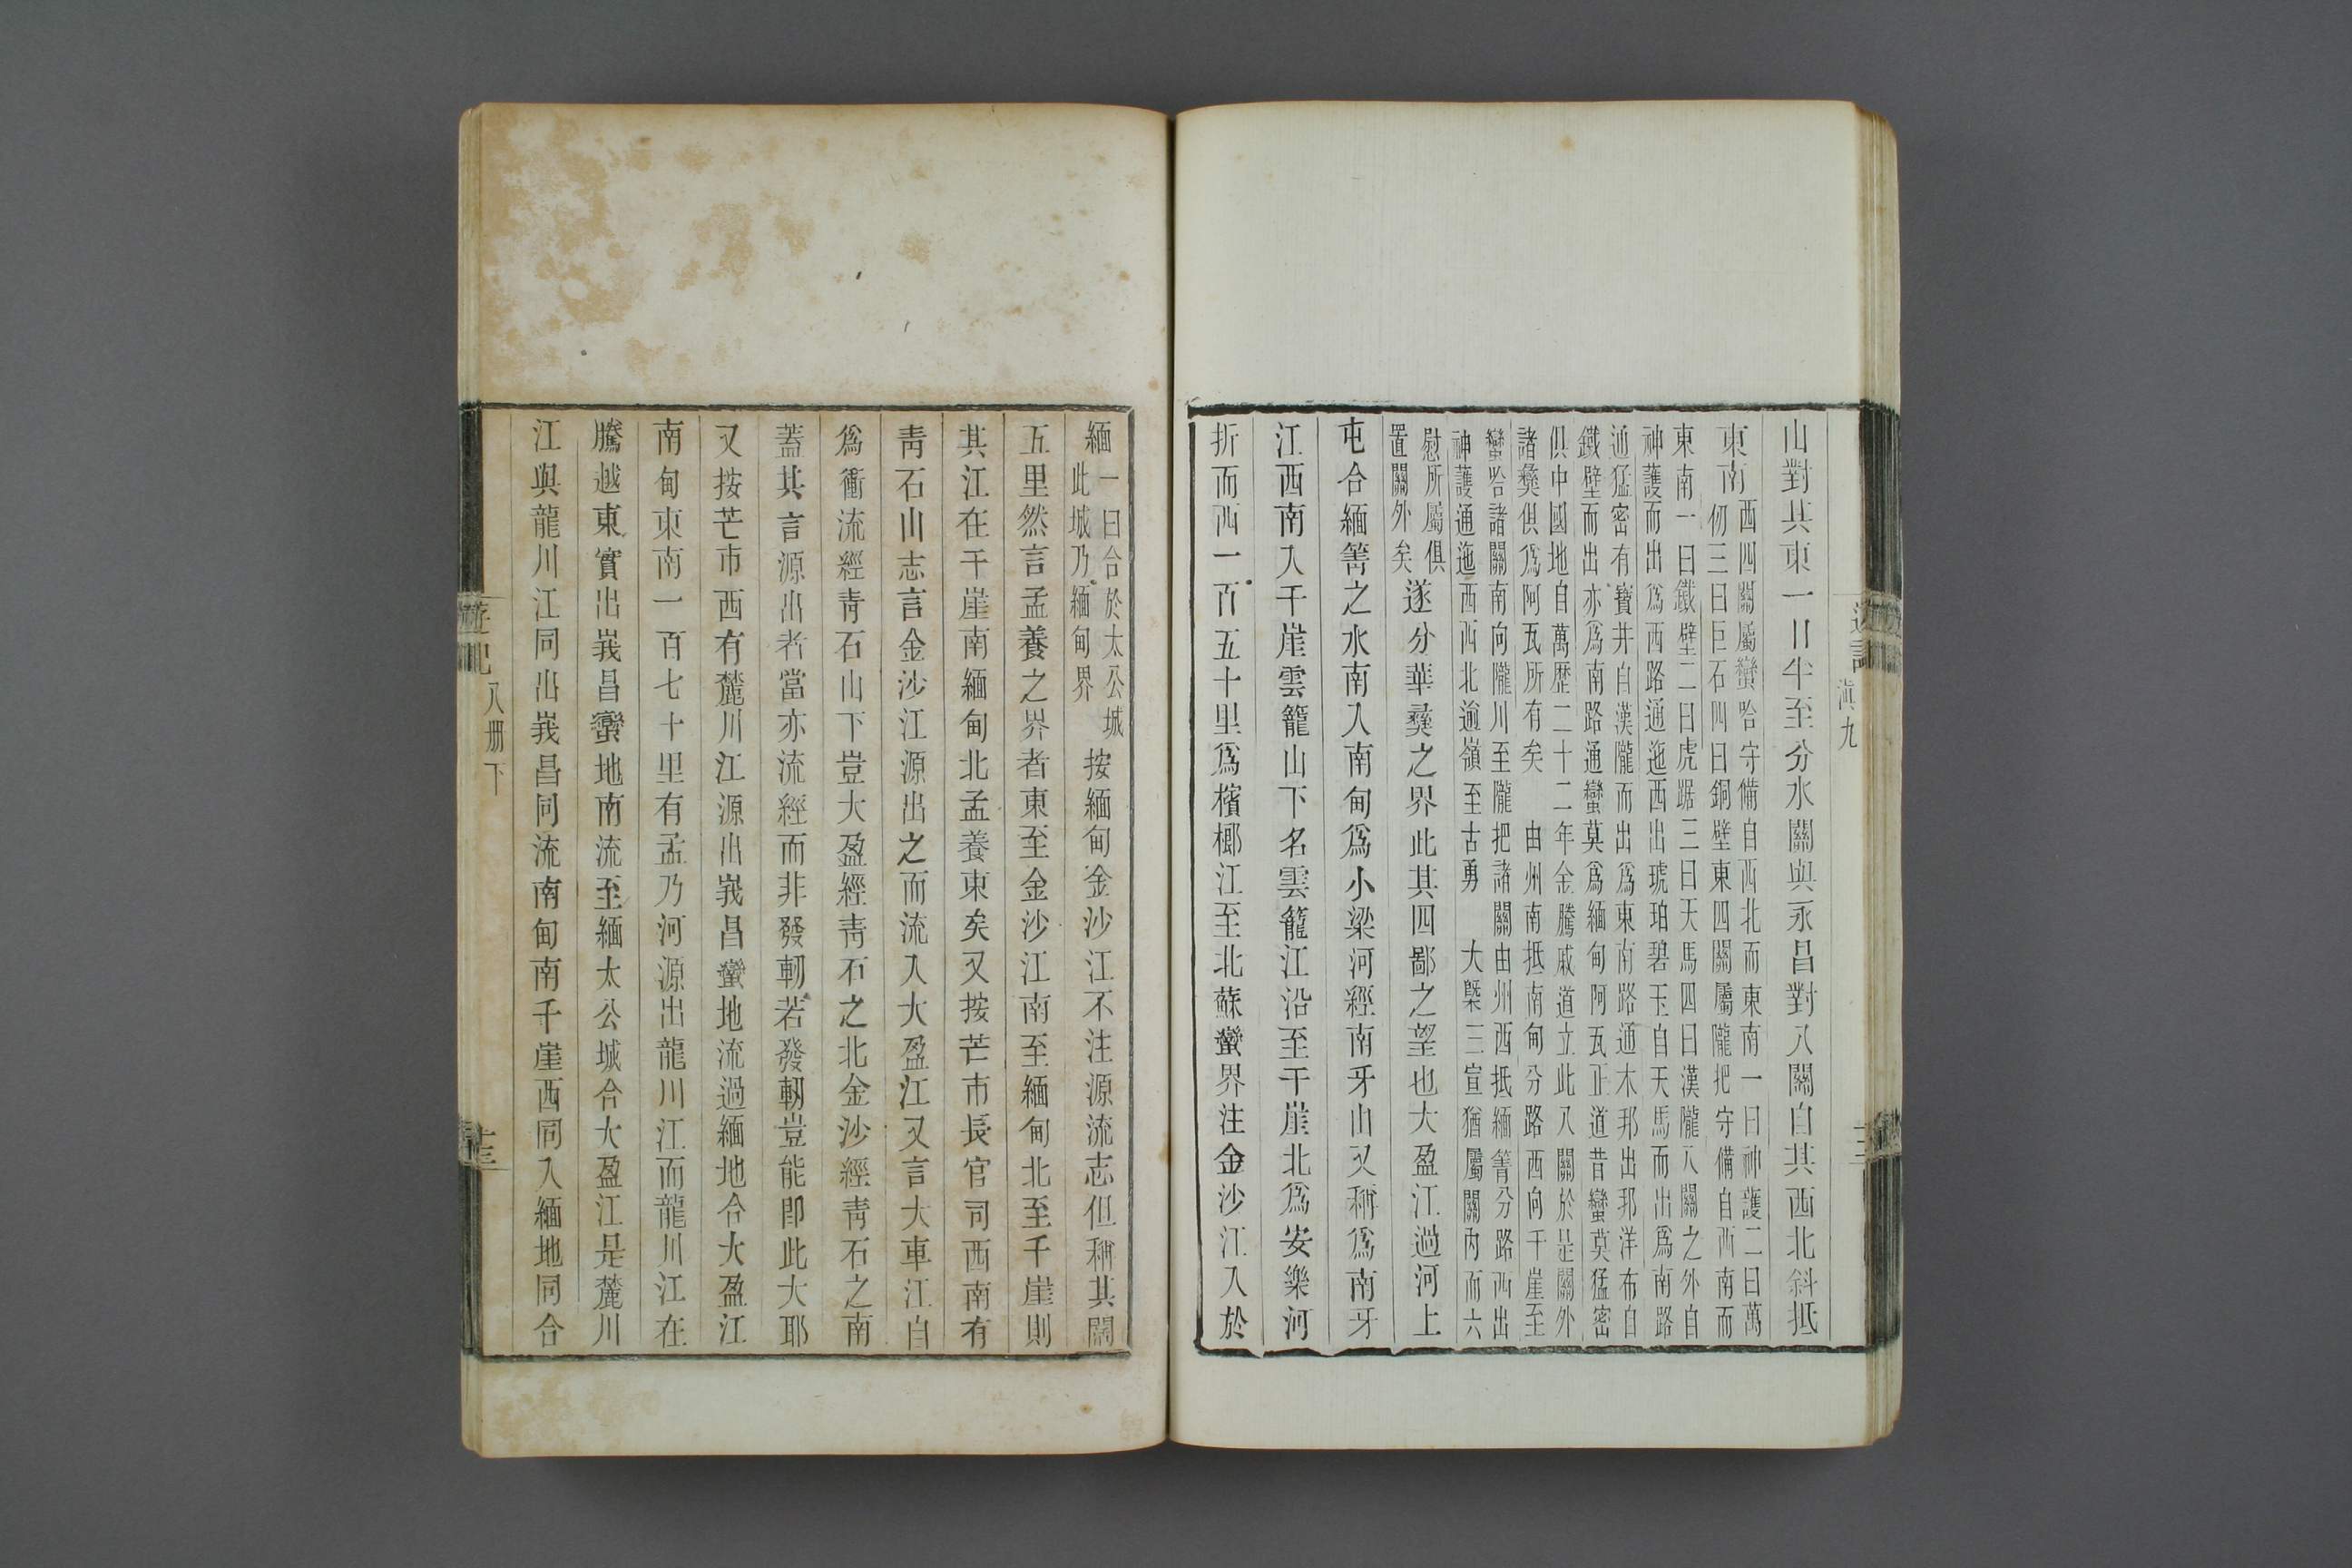 遊記 滇九 十三
山對其東一日半至分水關與永昌對八關自其西北斜抵
東南
西四關屬蠻哈守備自西北而東南一曰神護二曰萬
仞三曰巨石四曰銅壁東四關屬隴把守備自西南而
東南一曰鐵壁二曰虎踞三曰天馬四曰漢隴八關之外自
神護而出爲西路通迤西出琥珀碧玉自天馬而出爲南路
通猛密有寶井自漢隴而出爲東南路通木邦出邦洋布自
鐵壁而出亦爲南路通蠻莫爲緬甸阿瓦正道昔蠻莫猛密
俱中國地自萬歷二十二年金騰戚道立此八關於是關外
諸彝俱爲阿瓦所有矣 由州南抵南甸分路西向干崖至
蠻哈諸關南向隴川至隴把諸關由州西抵緬箐分路西出
神護通迤西西北逾嶺至古勇 大槩三宣猶屬關內而六
慰所屬俱
置關外矣
遂分華彝之界此其四鄙之望也大盈江過河上
屯合緬箐之水南入南甸爲小梁河經南牙山又稱爲南牙
江西南入干崖雲籠山下名雲籠江沿至干崖北爲安樂河
折而西一百五十里爲檳榔江至北蘇蠻界注金沙江入於
緬
一曰合於太公城
此城乃緬甸界
按緬甸金沙江不注源流志但稱其闊
五里然言孟養之界者東至金沙江南至緬甸北至干崖則
其江在干崖南緬甸北孟養東矣又按芒市長官司西南有
青石山志言金沙江源出之而流入大盈江又言大車江自
爲衝流經青石山下豈大盈經青石之北金沙經青石之南
蓋其言源出者當亦流經而非發軔若發軔豈能卽此大耶
又按芒市西有麓川江源出峩昌蠻地流過緬地合大盈江
南甸東南一百七十里有孟乃河源出龍川江而龍川江在
騰越東實出峩昌蠻地南流至緬太公城合大盈江是麓川
江與龍川江同出峩昌同流南甸南千崖西同入緬地同合
遊記 八册下 十三